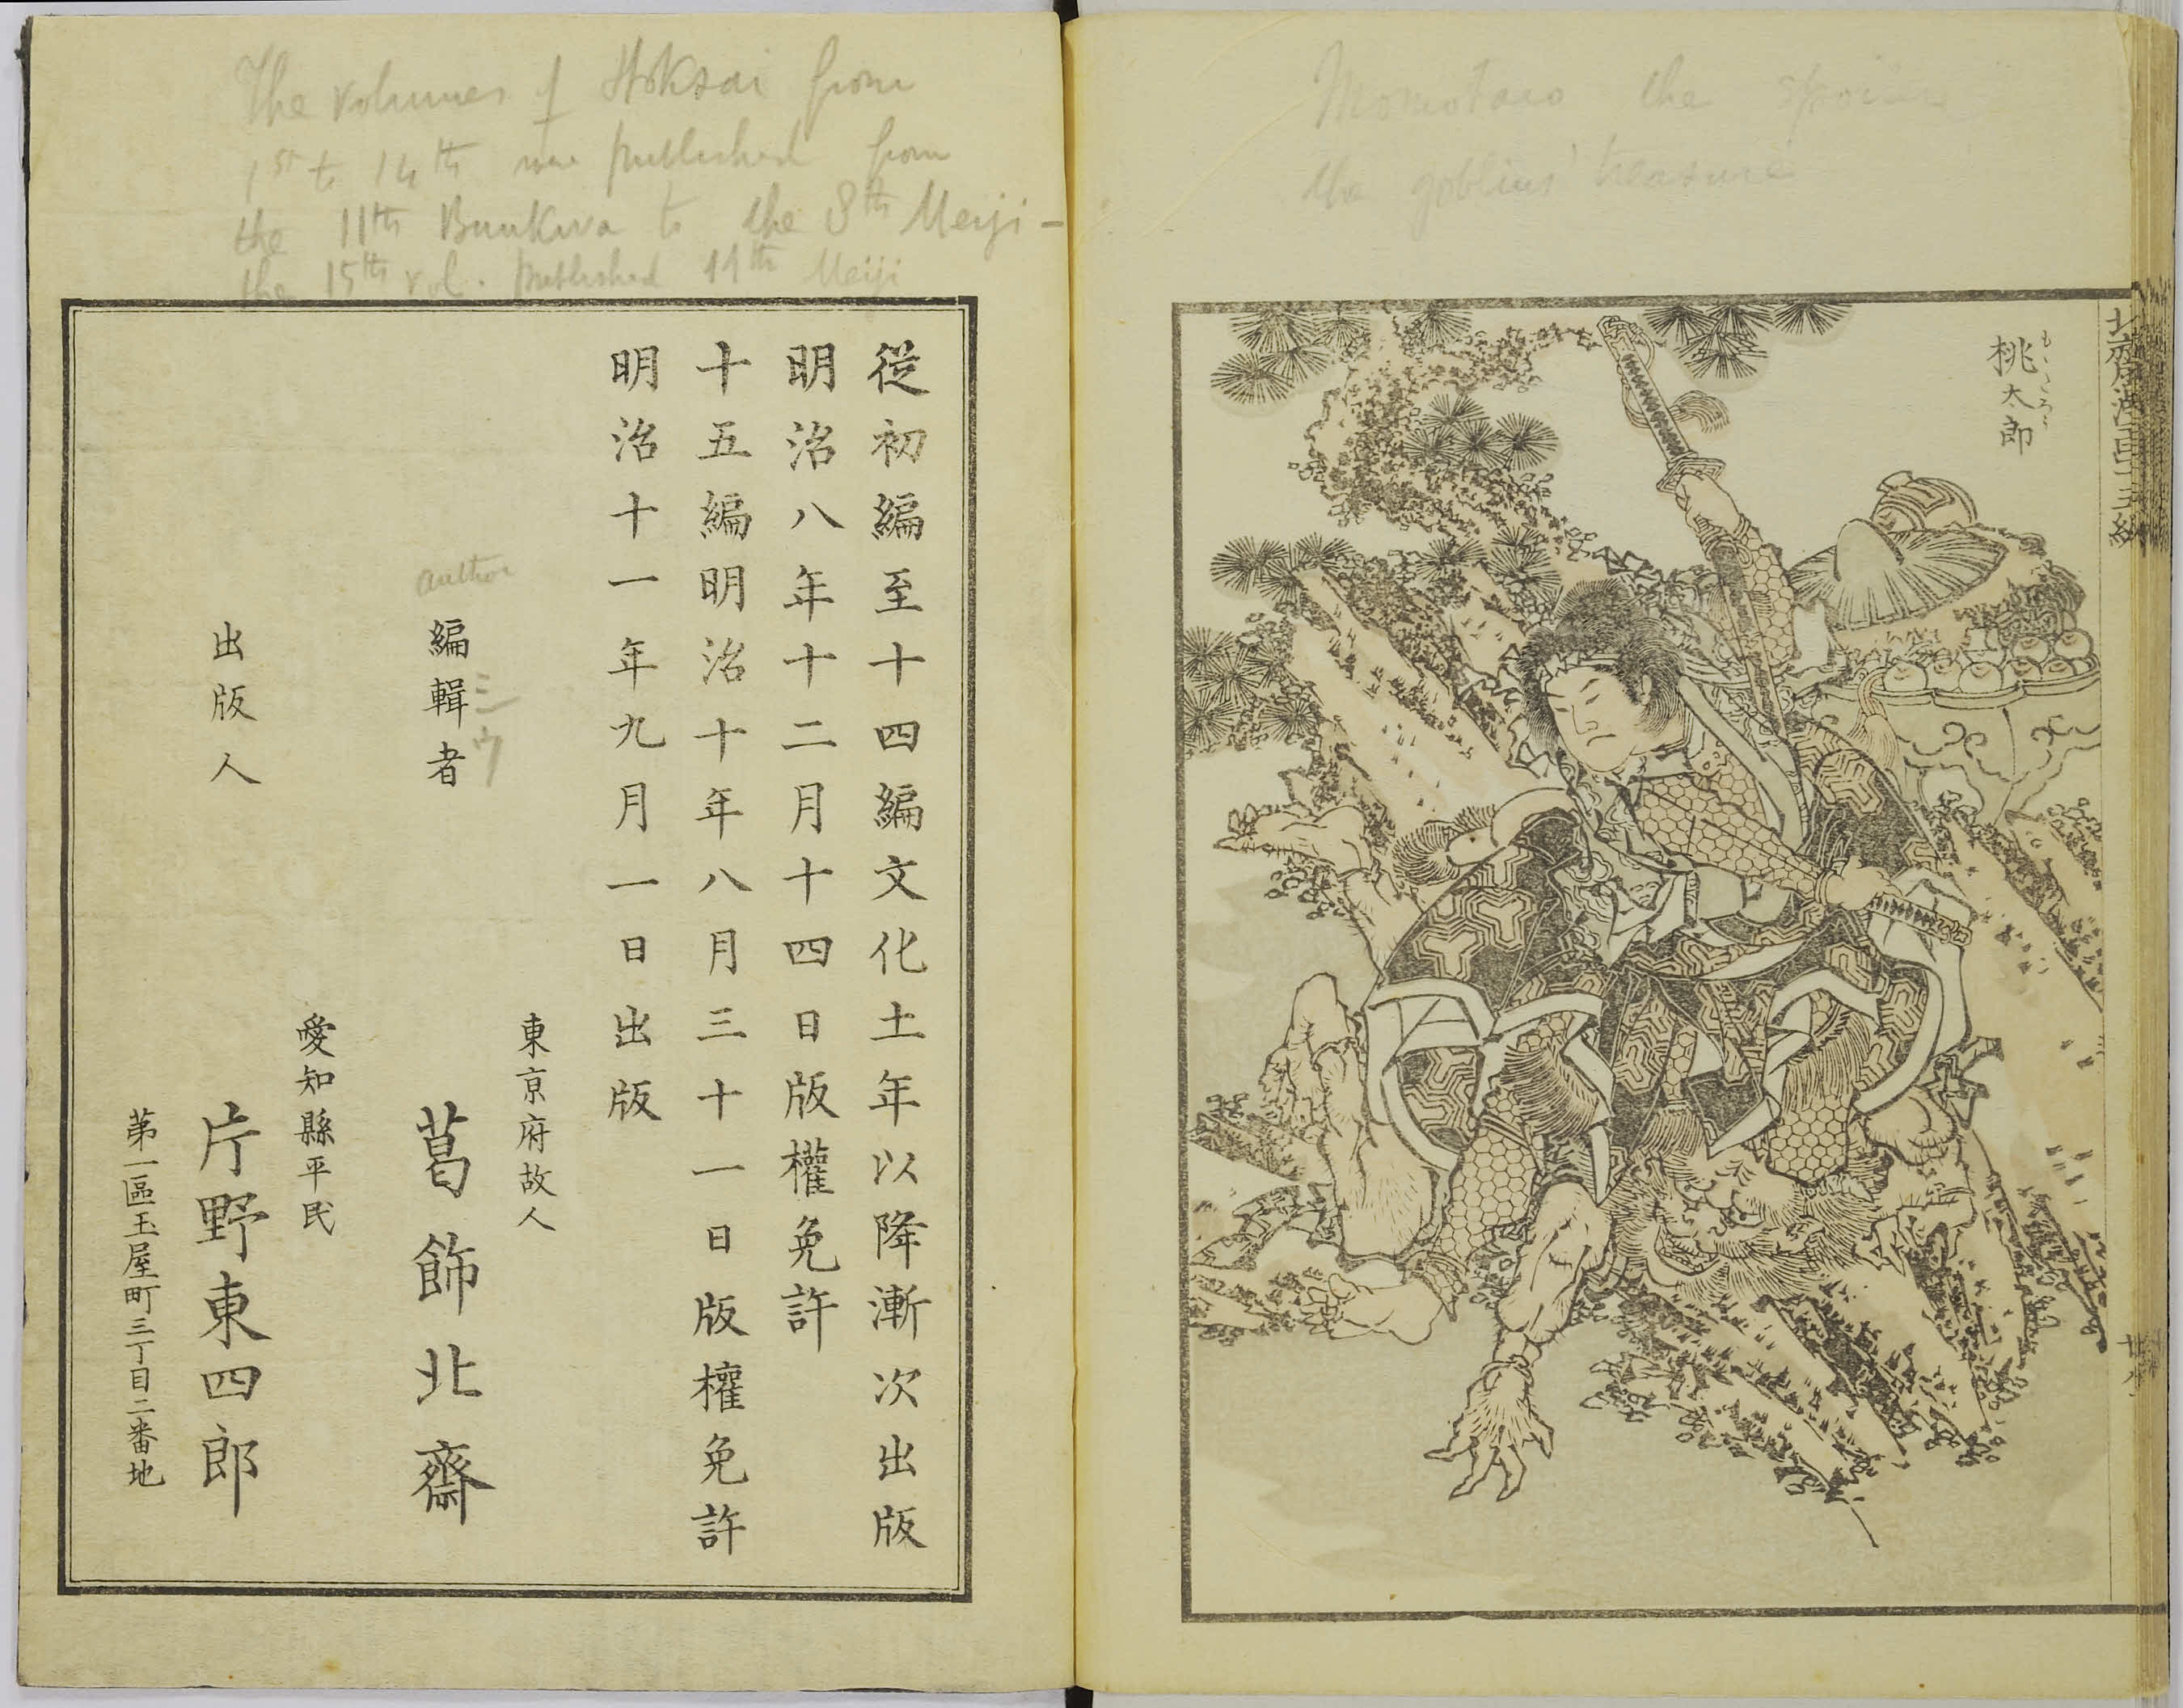 桃太郎
もゝたろう
Momotaro the
the goblins' treasure
The volumes of Hoksai from
1st to 14th were published from
the 11th Bunkwa to the 8th Meiji -
the 15th vol. published 11th Meiji
從初編至十四編文化十一年以降漸次出版
明治八年十二月十四日版權免許
十五編明治十年八月三十一日版權免許
明治十一年九月一日出版
東京府故人
author
編輯者 葛飾北齋
愛知縣平民
出版人 片野東四郎
第一區玉屋町三丁目二番地